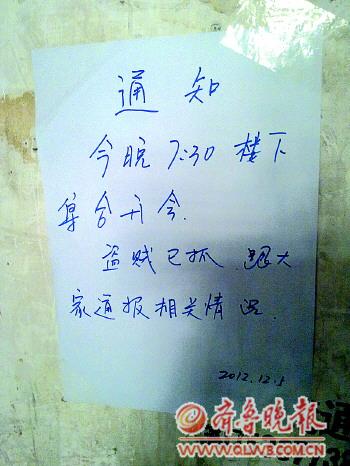 通知
今晚7:30楼下
集合开会.
盗贼已抓,跟大
家通报相关情况.
2012.12.5
通
齐鲁晚报
WWW.QLWB.COM.CN